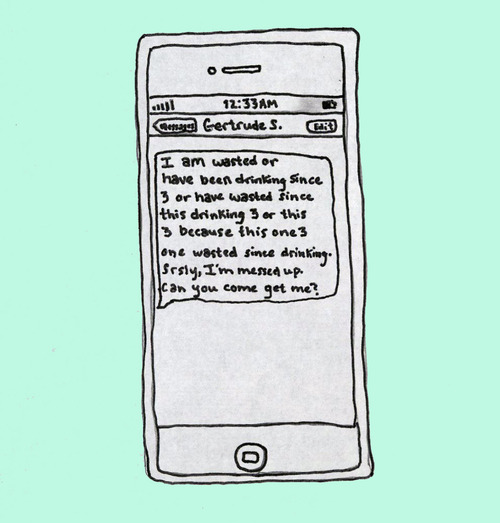 12:33AM
Messages Gertrude S. Edit
I am wasted or
have been drinking since
3 or have wasted since
this drinking 3 or this
3 because this one 3
one wasted since drinking.
Srsly, I'm messed up.
Can you come get me?